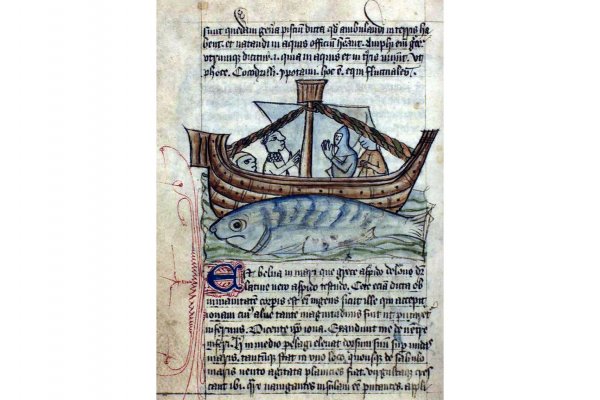 sunt quedam gena pisciū dicta qđ ambulandi in terris ha
bent. et natandi in aquis officiū heant. Amphi em̄ grece
utrumque dicitur .i. quia in aquis et in tris uiuit. ut
phoce. Cocodrilli. ypotami. hoc ē. equi fluctuales.
Est belua in mari que grece aspido delone dr̄
latine uero aspido testudo. Cete eciā dicta ob
immanitatem corpis est enī ingens sicut ille qui excepit
ionam cuius aluus tante magnitudinis fuit ut putaret
infernus. Dicente ipo iona. Exaudiuit me de uentre
inferi. in medio pelagi eleuat dorsum suū sup undas
maris. tantumque stat in uno loco. quousque de sabulo
maris uento agitata planicies fiat. uirgultaque cres
cant ibi. nauigantes insulam eē putantes. appli